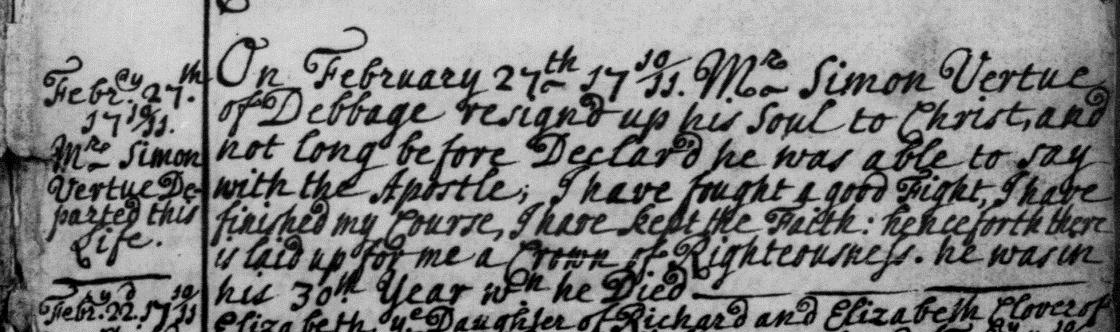 Febr.ay 27.th
17 10/11.
Mr. Simon
Vertue De-
parted this
Life.
On February 27th 17 10/11. Mr. Simon Vertue
of Debbage resign'd up his Soul to Christ, and
not long before Declar'd he was able to say
with the Apostle; I have fought a good Fight, I have
finished my Course, I have kept the Faith: henceforth there
is laid up for me a Crown of Righteousness. he was in
his 30th Year wn he Died
Febr.ay 22.d 17 10/11
Elizabeth ye Daughter of Richard and Elizabeth Clover of